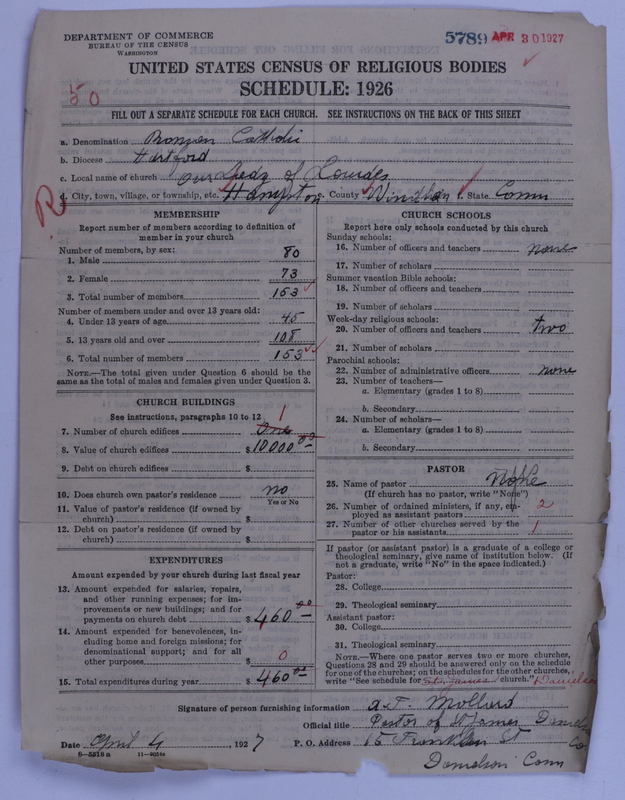 DEPARTMENT OF COMMERCE
BUREAU OF THE CENSUS
WASHINGTON
5789 APR 30 1927
UNITED STATES CENSUS OF RELIGIOUS BODIES
SCHEDULE: 1926
50
FILL OUT A SEPARATE SCHEDULE FOR EACH CHURCH. SEE INSTRUCTIONS ON THE BACK OF THIS SHEET
a. Denomination Roman Catholic
b. Diocese Hartford
c. Local name of church Our Lady of Lourdes
d. City, town, village, or township, etc. Hampton e. County Windham f. State Conn
R
MEMBERSHIP
Report number of members according to definition of
member in your church
Number of members, by sex:
1. Male 80
2. Female 73
3. Total number of members 153
Number of members under and over 13 years old:
4. Under 13 years of age 45
5. 13 years old and over 108
6. Total number of members 153
NOTE.—The total given under Question 6 should be
same as the total of males and females given under Question 3.
CHURCH BUILDINGS
See instructions, paragraphs 10 to 12 1
7. Number of church edifices One
8. Value of church edifices $ 10000 00
9. Debt on church edifices $
10. Does church own pastor's residence no
Yes or No
11. Value of pastor's residence (if owned by
church) $
12. Debt on pastor's residence (if owned by
church) $
EXPENDITURES
Amount expended by your church during last fiscal year
13. Amount expended for salaries, repairs,
and other running expenses; for im-
provements or new buildings; and for
payments on church debt $ 460 00
14. Amount expended for benevolences, in-
cluding home and foreign missions; for
denominational support; and for all
other purposes $ 0
15. Total expenditures during year $ 460 00
CHURCH SCHOOLS
Report here only schools conducted by this church
Sunday schools:
16. Number of officers and teachers none
17. Number of scholars
Summer vacation Bible schools:
18. Number of officers and teachers
19. Number of scholars
Week-day religious schools:
20. Number of officers and teachers two
21. Number of scholars
Parochial schools:
22. Number of administrative officers none
23. Number of teachers—
a. Elementary (grades 1 to 8)
b. Secondary
24. Number of scholars—
a. Elementary (grades 1 to 8)
b. Secondary
PASTOR
25. Name of pastor None
(If church has no pastor, write "None")
26. Number of ordained ministers, if any, em-
ployed as assistant pastors 2
27. Number of other churches served by the
pastor or his assistants 1
If pastor (or assistant pastor) is a graduate of a college or
theological seminary, give name of institution below. (If
not a graduate, write "No" in the space indicated.)
Pastor:
28. College
29. Theological seminary
Assistant pastor:
30. College
31. Theological seminary
NOTE.—Where one pastor serves two or more churches,
Questions 28 and 29 should be answered only on the schedule
for one of the churches; on the schedules for the other churches,
write "See schedule for St. James church." Danielson
Signature of person furnishing information
Official title Pastor of St James Danielson
Date April 4 1927 P. O. Address 15 Franklin St
Danielson Conn
8—5518a 11—9054a